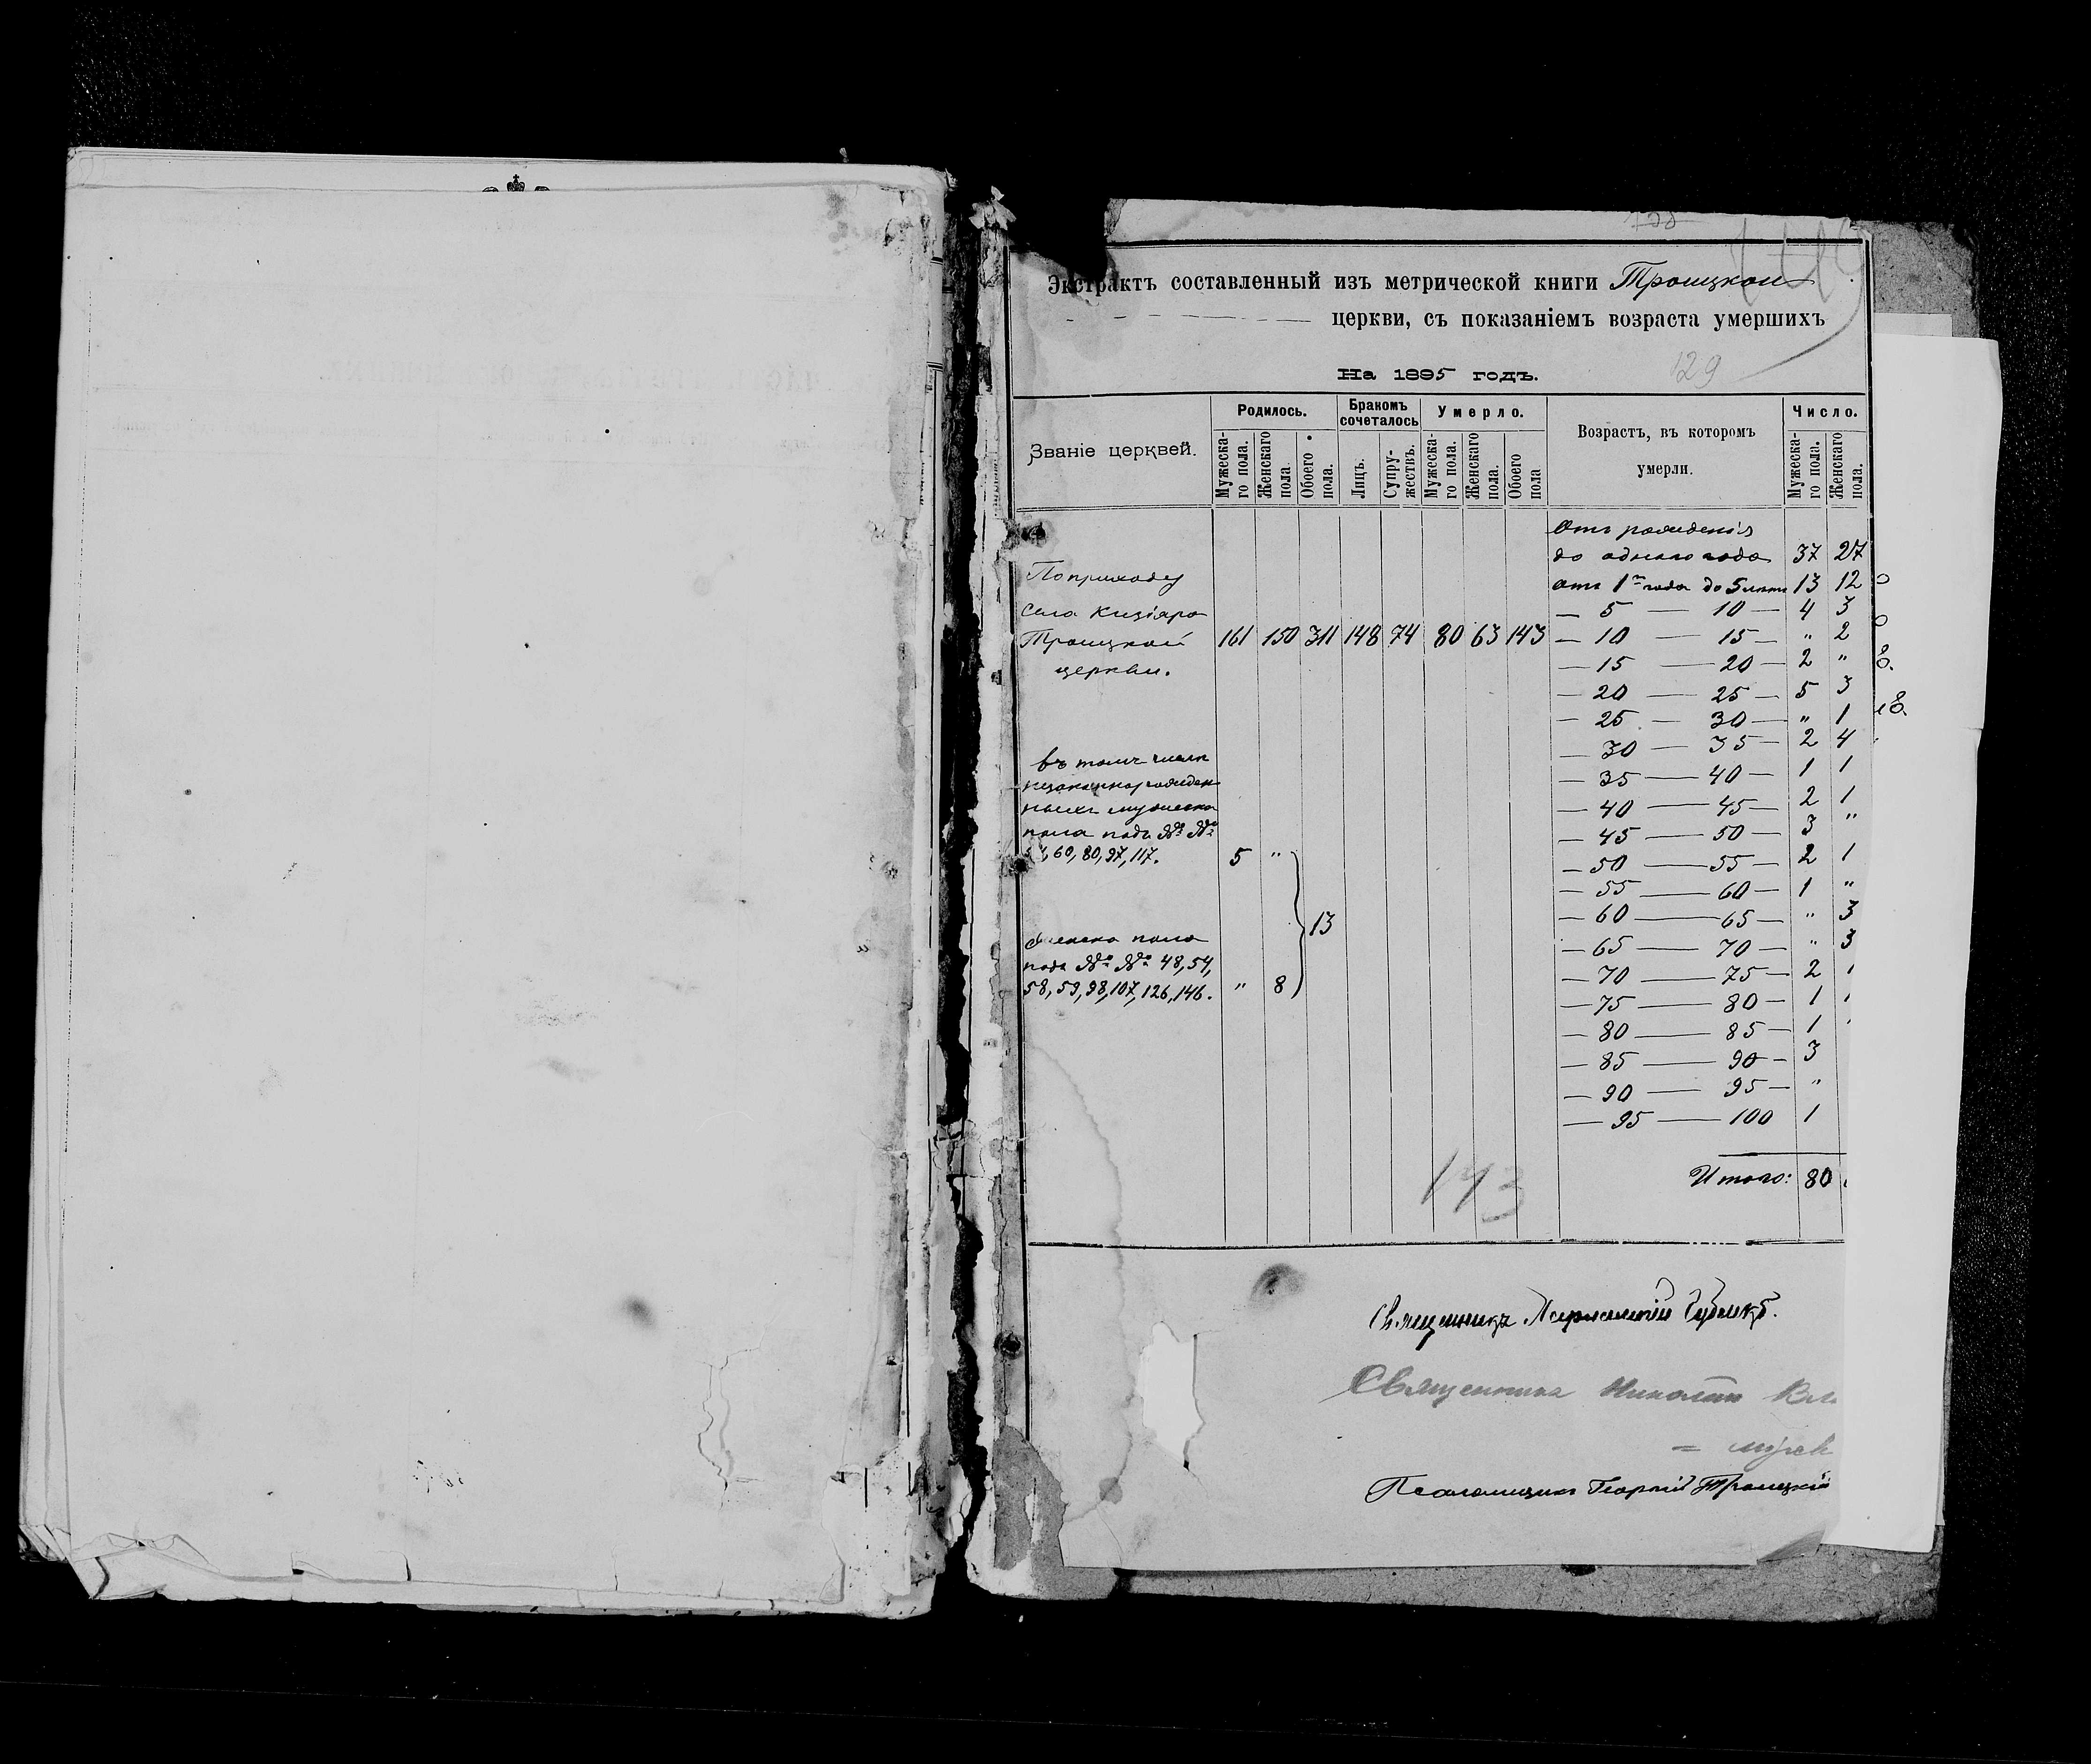 Экстрактъ составленный изъ метрической книги Троицкой
церкви, съ показаніемъ возраста умершихъ
129
На 1895 годъ.
Званіе церквей.
Родилось.
Бракомъ сочеталось
Умерло.
Возрастъ, въ котором ъ умерли.
Число.
Мужеска-го пола.
Женскаго пола.
Обоего пола.
Лицъ.
Супру-жествъ.
Мужеска-го пола.
Женскаго пола.
Обоего пола
Мужеска-го пола.
Женскаго пола.
Отъ рожденія
до одного года 37 27
отъ 1го года до 5 лѣтъ 13 12
По приходу
села Кизіяра — 5 — 10 — 4 3
Троицкой 161 150 311 148 74 80 63 143 — 10 — 15 — " 2
церкви. — 15 — 20 — 2 "
— 20 — 25 — 5 3
— 25 — 30 — " 1
— 30 — 35 — 2 4
въ томъ числѣ
— 35 — 40 — 1 1
незаконнорожден
ныхъ мужеска — 40 — 45 — 2 1
пола подъ №№ — 45 — 50 — 3 "
60, 80, 97, 117. 5 " — 50 — 55 — 2 1
— 55 — 60 — 1 "
13 — 60 — 65 — " 3
женска пола — 65 — 70 — " 3
подъ №№ 48, 54, — 70 — 75 — 2 1
58, 59, 98, 107, 126, 146. " 8 — 75 — 80 — 1 1
— 80 — 85 — 1
— 85 — 90 — 3
— 90 — 95 — "
— 95 — 100 1
143
Итого: 80
Священникъ
Священникъ Николай
Псаломщикъ Георгій Троицкій